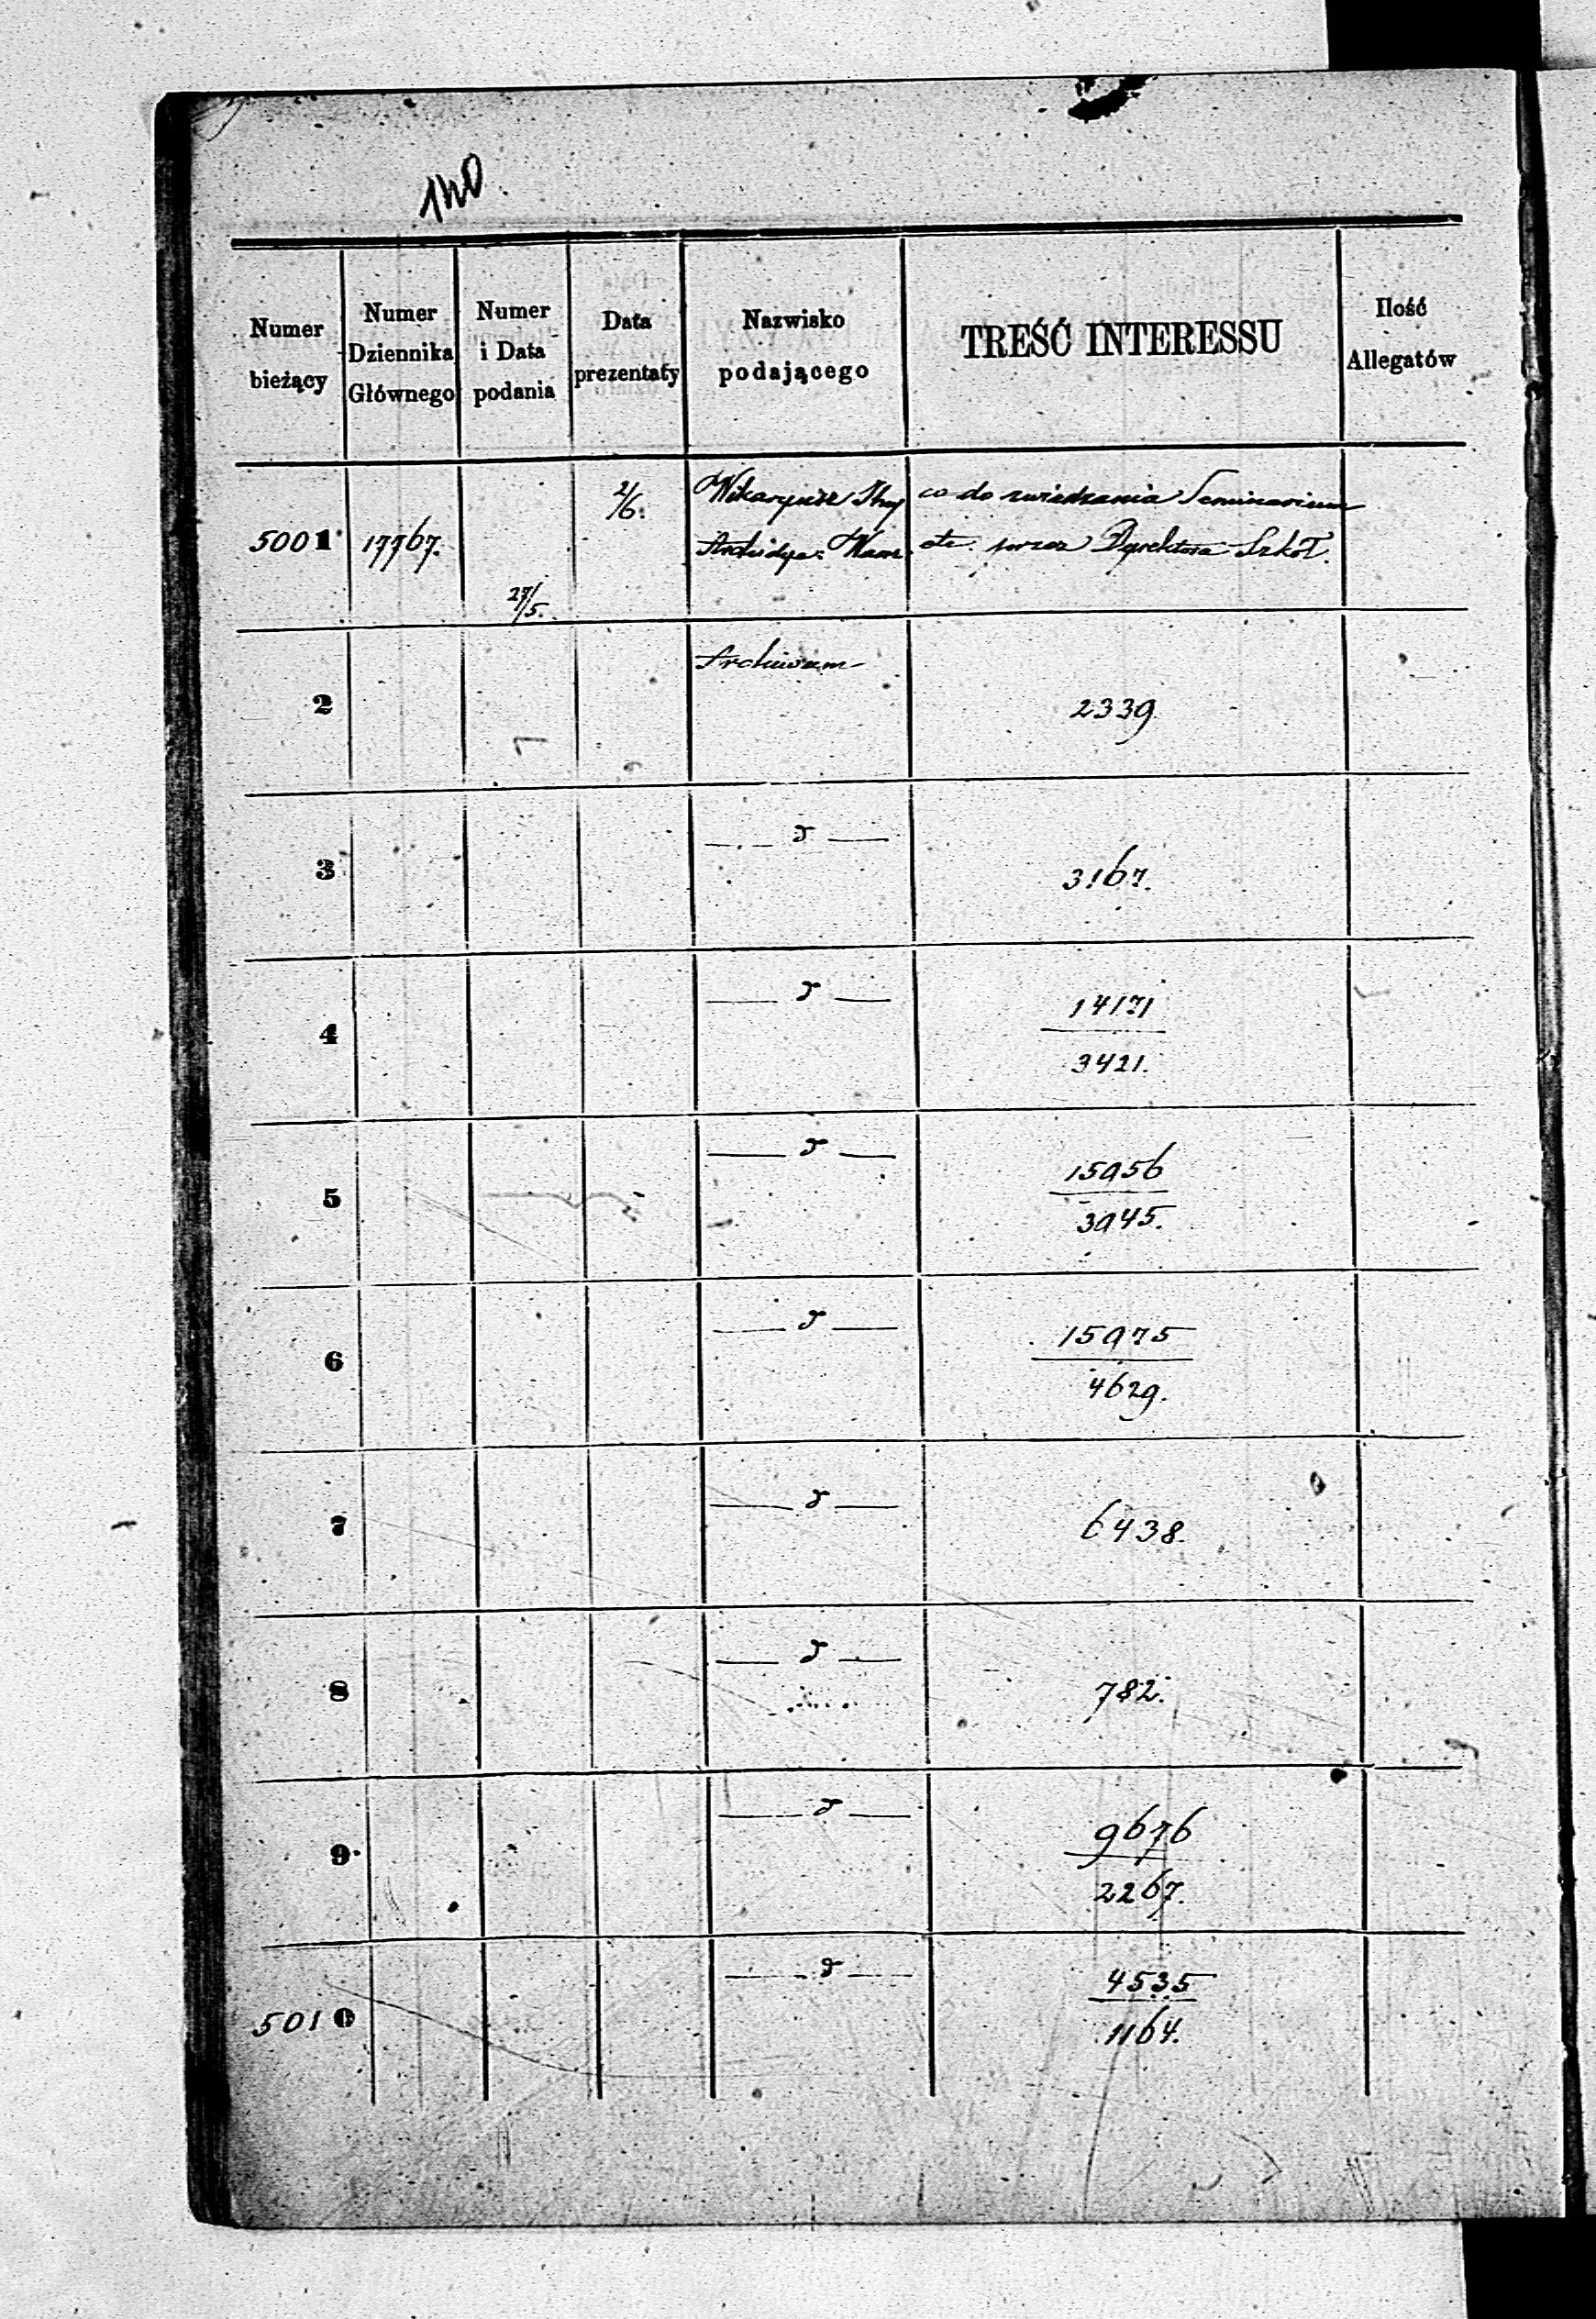 140.
Numer bieżący
Numer Dziennika Głównego
Numer i Data podania
Data prezentaty
Nazwisko podającego
TREŚĆ INTERESSU
Ilość Allegatów
5001 17767. 27/5. 2/6. Wikaryusz co do zwiedzania Seminarium
Archidye: Warsz. etc. przez Dyrektora Szkół.
2 Archiwum 2339
3 — d — 3167.
4 — d — 14171
3421.
5 — d — 15956
3945.
6 — d — 15975
4629.
7 — d — 6438.
8 — d — 782.
9 — d — 9676
2267.
5010 — d — 4535
1164.